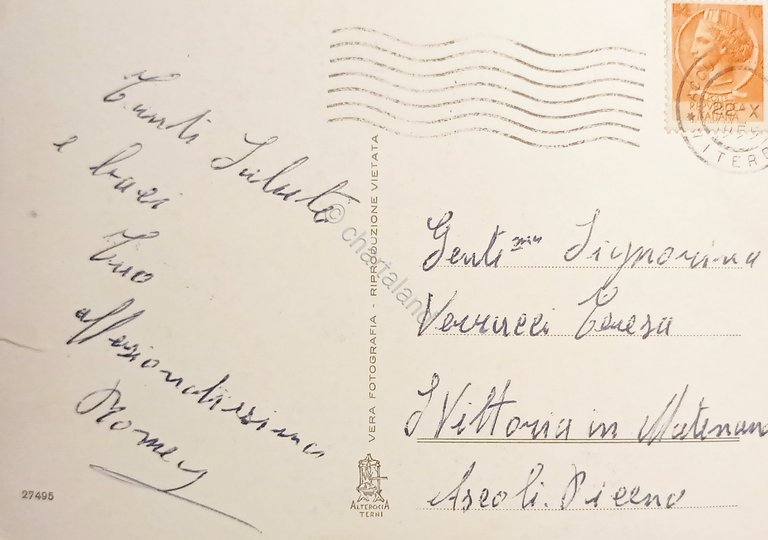 Tanti Saluti
e baci
Tuo
affezionatissimo
27495
VERA FOTOGRAFIA - RIPRODUZIONE VIETATA
ALTEROCCA
TERNI
© chartaland
VITERB
Gentima Signorina
Verrucci Teresa
S Vittoria in Matenano
Ascoli. Piceno